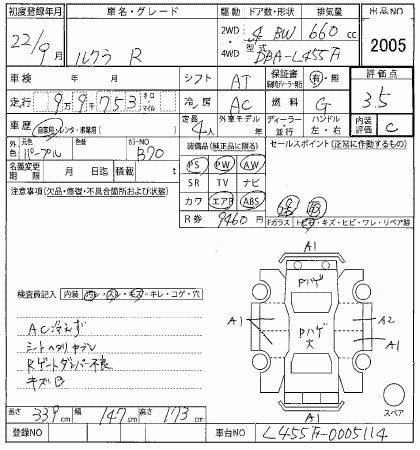 初度登録年月 車名・グレード 駆動 ドア数・形状 排気量 出品NO
22/9月 ルクラ R 2WD 4WD 4 BW 660 cc 2005
型式 DBA-L455F
車検 年 月 シフト AT 保証書 有・無 評価点
走行 9万9千753 キロ・マイル 冷房 AC 燃料 G 3.5
車歴 自家用・レンタ・営業用 定員 4人 外車モデル 年 ディーラー・並行 ハンドル 左・右 内装評価 C
外色 元色 パープル 色替 カラーNO B70 装備品(純正品に限る) セールスポイント(正常に作動するもの)
名義変更期限 月 日迄 積載 t PS PW AW
注意事項(欠品・修復・不具合箇所および状態) SR TV ナビ
カワ エアB ABS
R券 9460円 Fガラス トビ・キズ・ヒビ・ワレ・リペア跡
A1
Pハゲ
検査員記入 内装 ヨゴレ・スレ・キズ・キレ・コゲ・穴
A1 A2
AC冷えず Pハゲ 大 A1
シートヘタリ ヤブレ
Rゲートダンパー不良
キズB スペア
長さ 339 cm 幅 147 cm 高さ 173 cm A1
登録NO 車台NO L455F-0005114